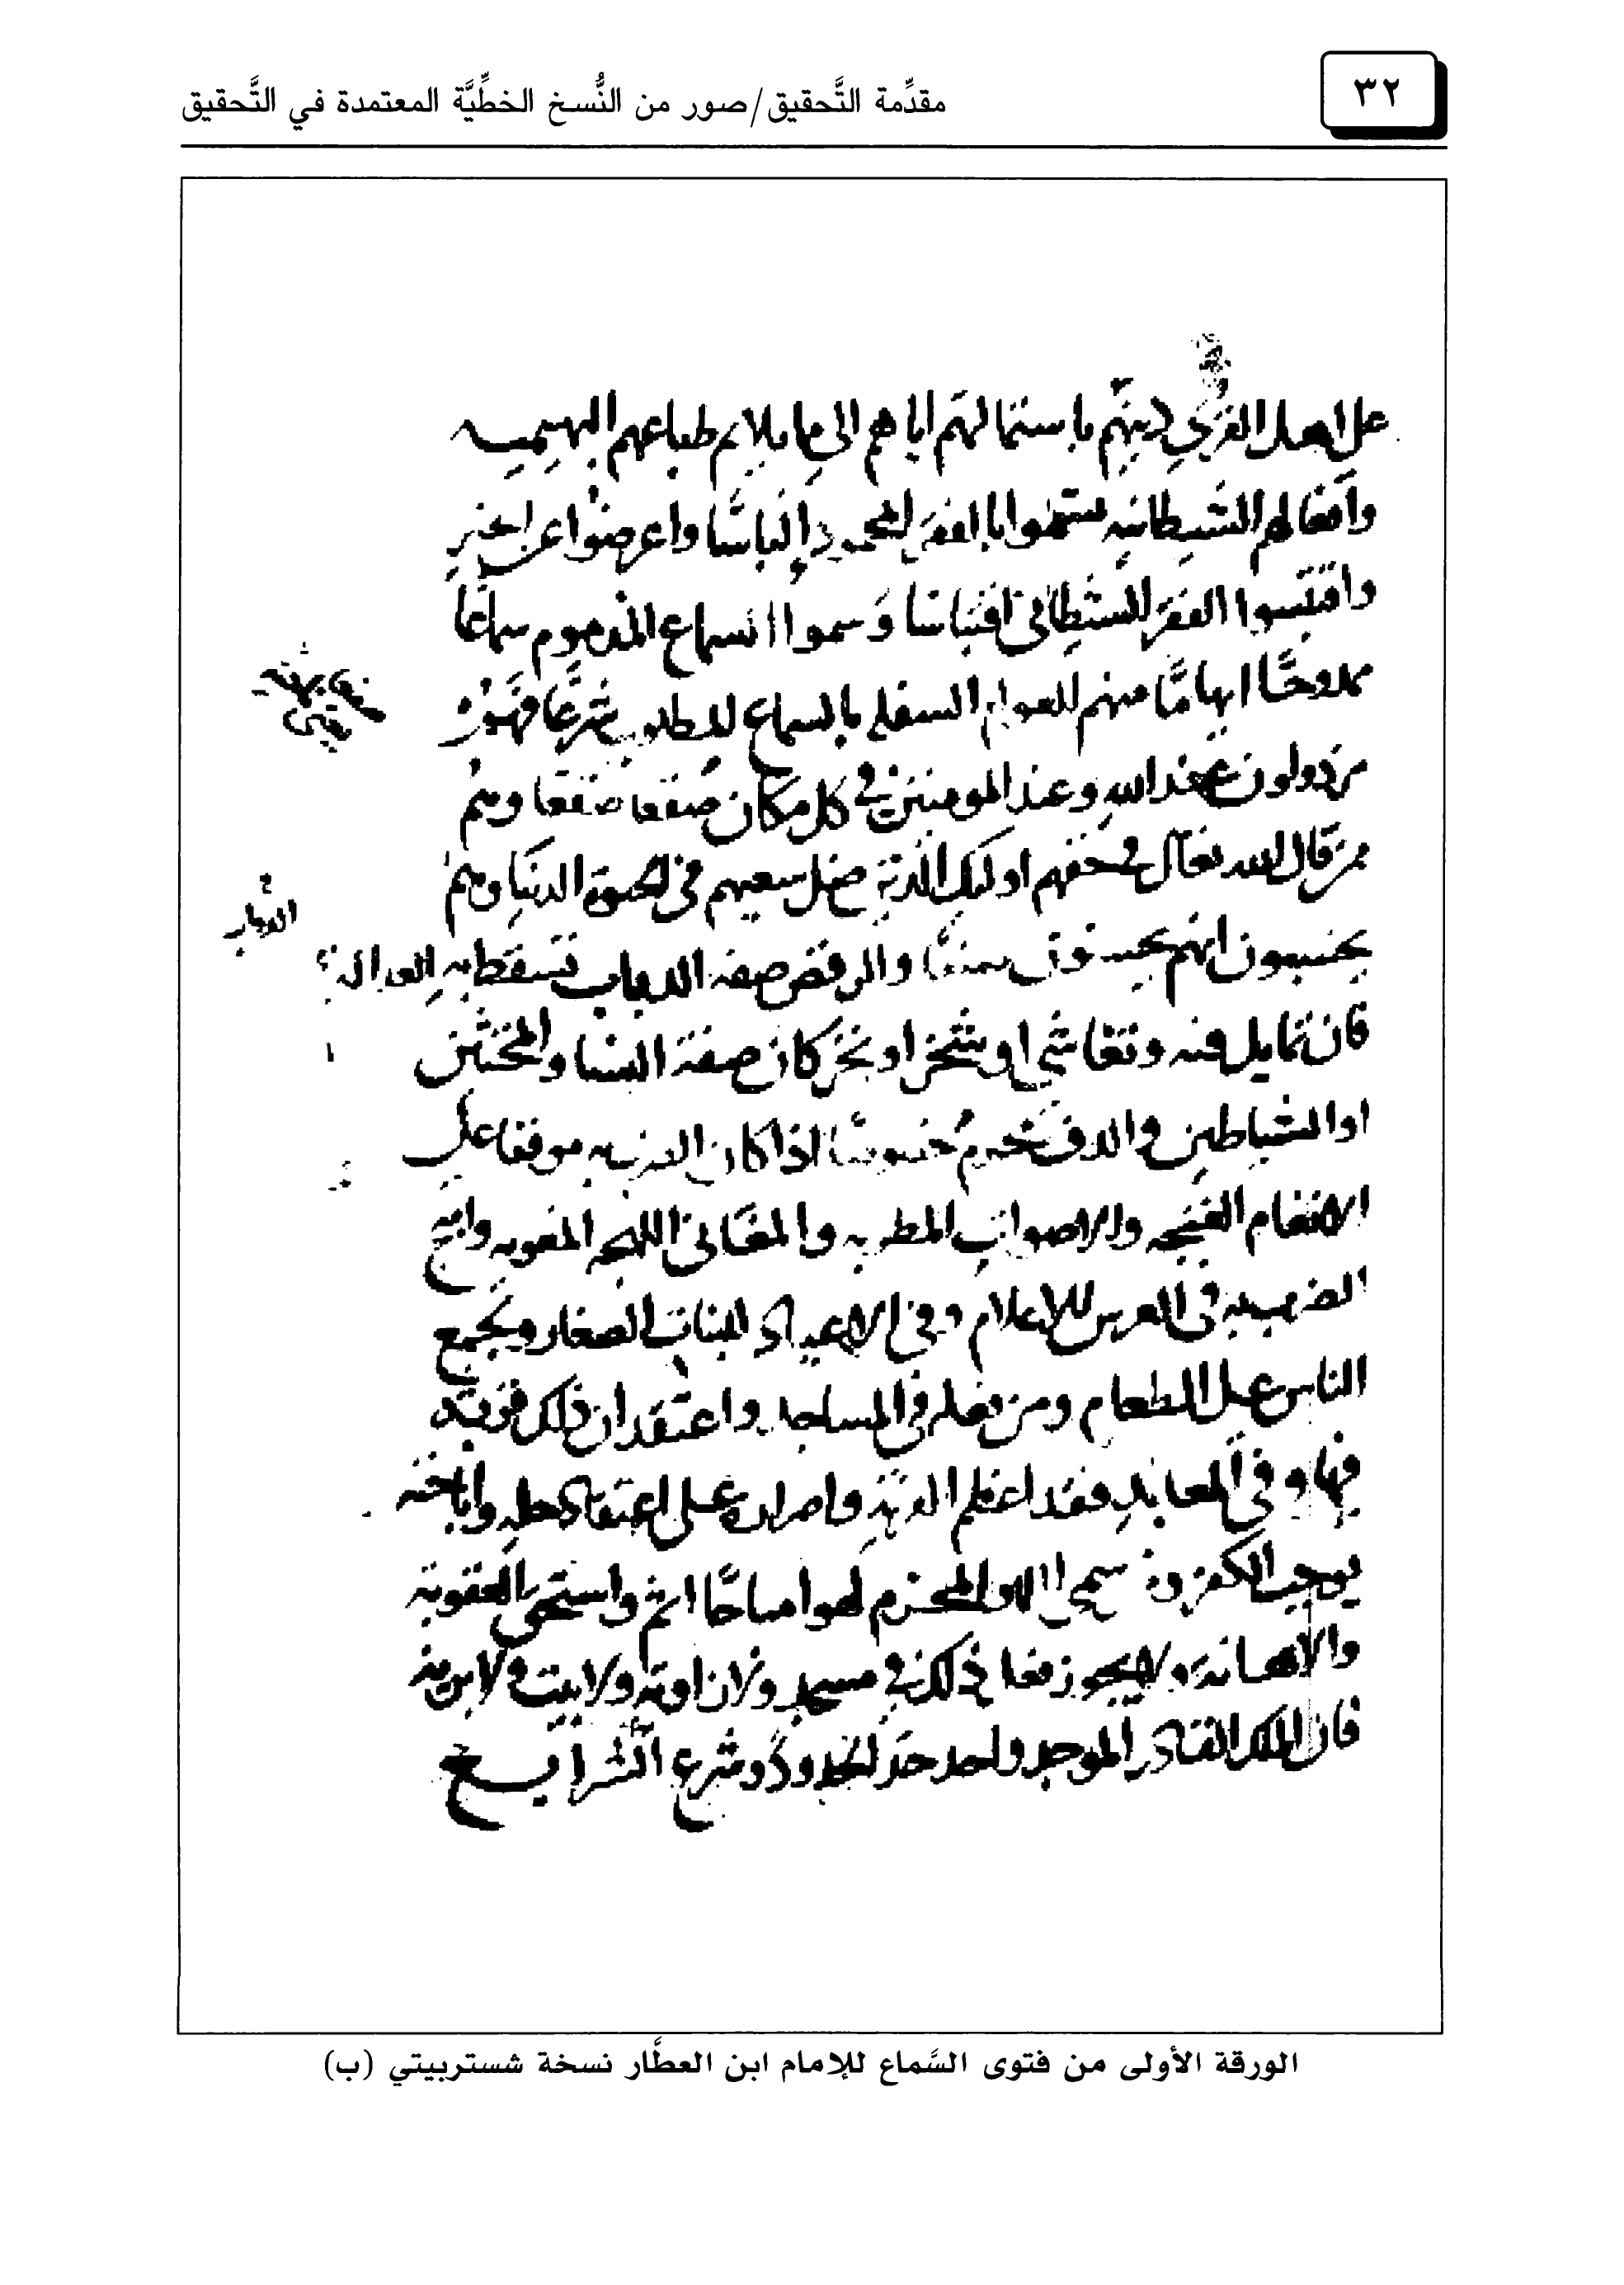 ٣٢
مقدِّمة التَّحقيق/صور من النُّسخ الخطِّيَّة المعتمدة في التَّحقيق
على اهل القرى دينهم باستمالتهم اياهم الى ما يلايم طباعهم البهيميه
وافعالهم الشيطانيه بالفقر المحمود الباسا واعرضوا عن الخير
واقتبسوا الفقر الشيطاني اقتباسا وسموا السماع المذموم سماعا
ممدوحا ابهاما منهم للعوام السفله بالسماع المطلوب شرعا فهو
عند الله وعند المومنين في كل مكان صفعا صفعا وهم
ممن قال الله تعالى في حقهم اوليك الذين ضل سعيهم في الحيوة الدنيا وهم
يحسبون انهم يحسنون صنعا والرقص صفه الدباب تسقط به العداله
الدباب
فان تمايل فيه وتغاشى او شخر او نخر كان صفة النسا والمخنثين
او الشياطين والدف يحرم خصوصا اذا كان الضرب به موقفا على
الانغام الغنجه والاصوات المطربه والمغاني اللهجه المغويه وابيح
الضرب به في العرس للاعلام وفي الاعياد للبنات الصغار ويجمع
الناس على الطعام ومن فعله في المساجد واعتقد ان ذلك قربة
فيها وفي المعابد فقد اعظم الفرية واصراره على اعتقاد حله واباحته
يوجب الكفر ومن سمى اللهو المحرم لهوا مباحا اثم واستحق العقوبة
والاهانة ولا يجوز فعل ذلك في مسجد ولا زاوية ولا بيت ولا برية
فان الملك القادر الموجد واحد حد الحدود وشرع الشرايع
الورقة الأولى من فتوى السَّماع للإمام ابن العطَّار نسخة شستربيتي (ب)